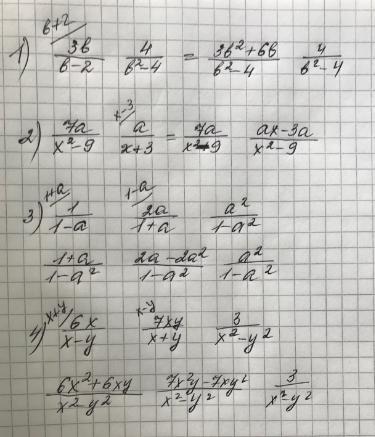 b+2/
1) 3b/(b-2) 4/(b²-4) = (3b²+6b)/(b²-4) 4/(b²-4)
x-3/
2) 7a/(x²-9) a/(x+3) = 7a/(x²-9) (ax-3a)/(x²-9)
1+a/ 1-a/
3) 1/(1-a) 2a/(1+a) a²/(1-a²)
(1+a)/(1-a²) (2a-2a²)/(1-a²) a²/(1-a²)
x+y/ x-y/
4) 6x/(x-y) 7xy/(x+y) 3/(x²-y²)
(6x²+6xy)/(x²-y²) (7x²y-7xy²)/(x²-y²) 3/(x²-y²)